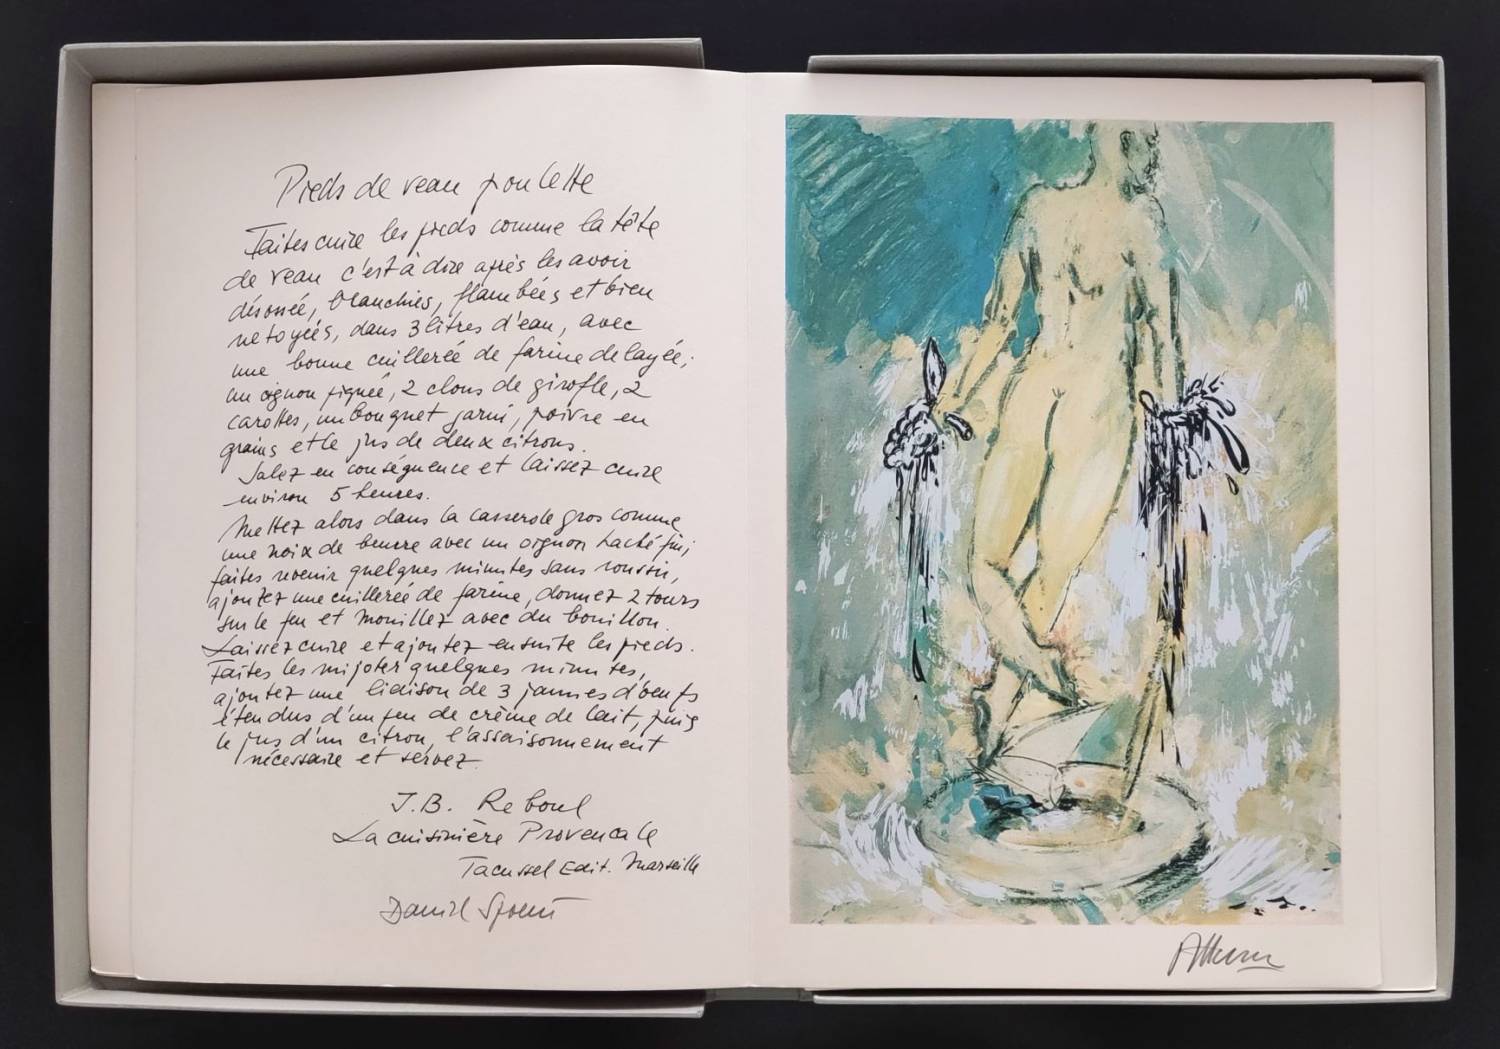 Pieds de veau poulette
Faites cuire les pieds comme la tête
de veau c'est à dire après les avoir
désossée, blanchies, flambées et bien
netoyées, dans 3 litres d'eau, avec
une bonne cuillerée de farine delayée,
un oignon piquée, 2 clous de girofle, 2
carottes, un bouquet garni, poivre en
grains et le jus de deux citrons.
Salez en conséquence et laissez cuire
environ 5 heures.
Mettez alors dans la casserole gros comme
une noix de beurre avec un oignon haché fin,
faites revenir quelques minutes sans roussir,
ajoutez une cuillerée de farine, donnez 2 tours
sur le feu et mouillez avec du bouillon.
Laissez cuire et ajoutez ensuite les pieds.
Faites les mijoter quelques minutes,
ajoutez une liaison de 3 jaunes d'oeufs
étendus d'un peu de crème de lait, puis
le jus d'un citron, l'assaisonnement
nécessaire et servez.
J.B. Reboul
La cuisinière Provencale
Tacussel Edit. Marseille
Daniel Spoerri